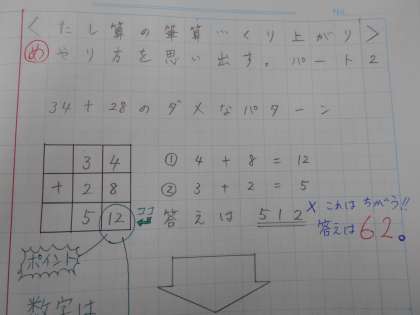 ＜たし算の筆算…くり上がり＞
め やり方を思い出す。パート2
34＋28のダメなパターン
3 4
＋ 2 8
5 12 ココ
① 4 ＋ 8 ＝ 12
② 3 ＋ 2 ＝ 5
答えは 512 × これはちがう!!
答えは62。
ポイント
数字は